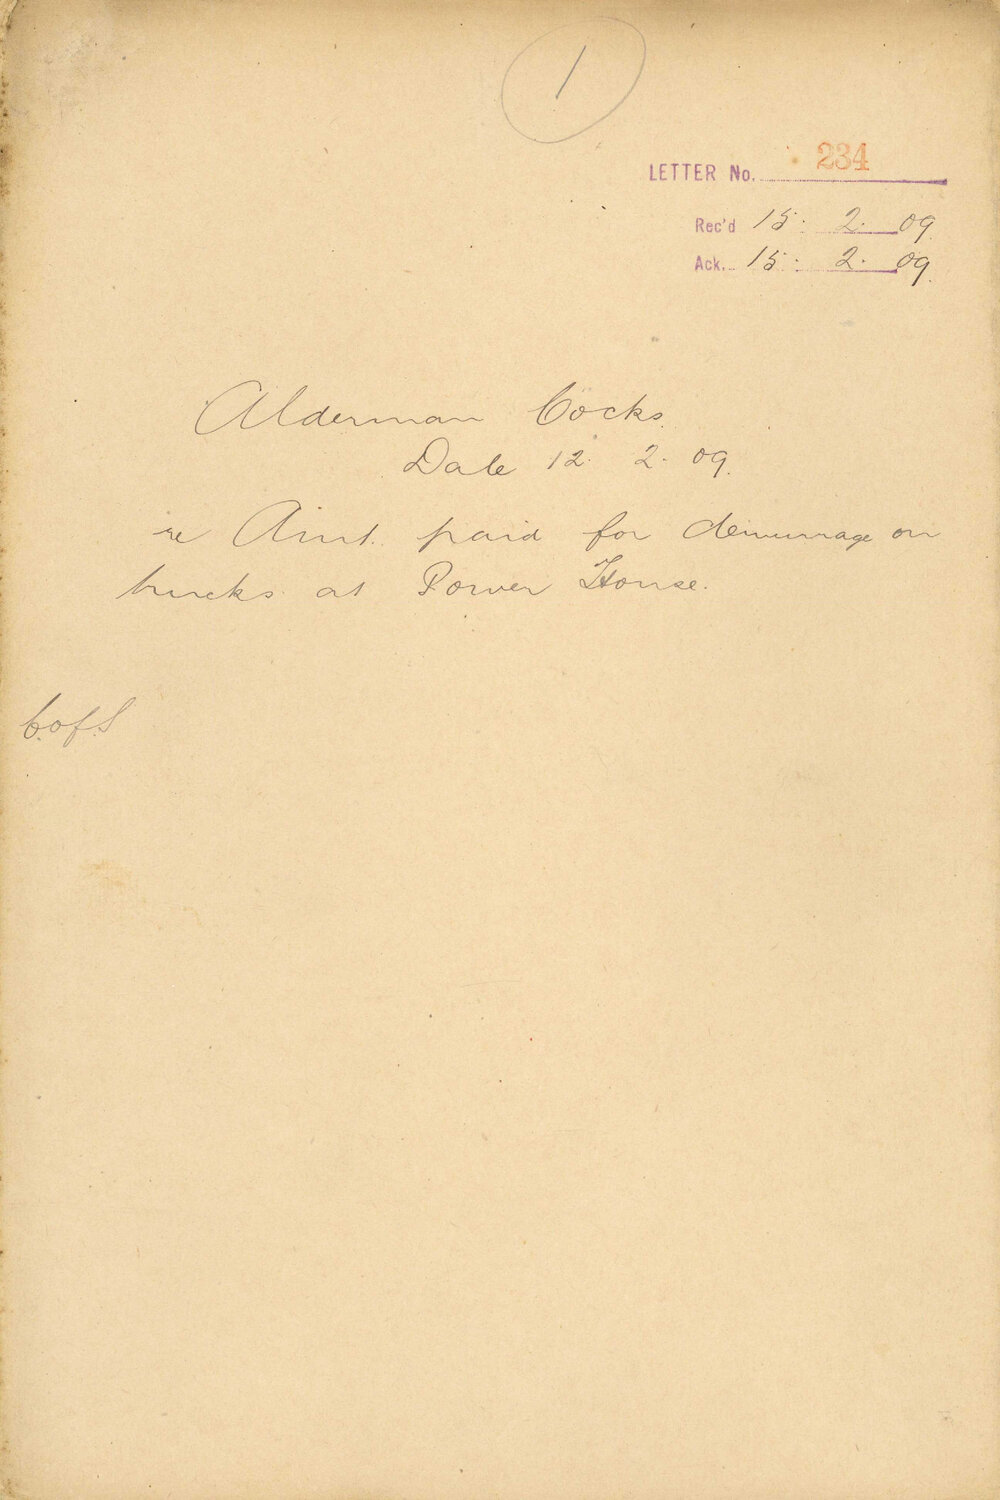 1
LETTER No. 234
Rec'd 15. 2. 09.
Ack. 15. 2. 09.
Alderman Cocks.
Date 12. 2. 09.
re Amt. paid for demurrage on
trucks at Power House.
C.of.S